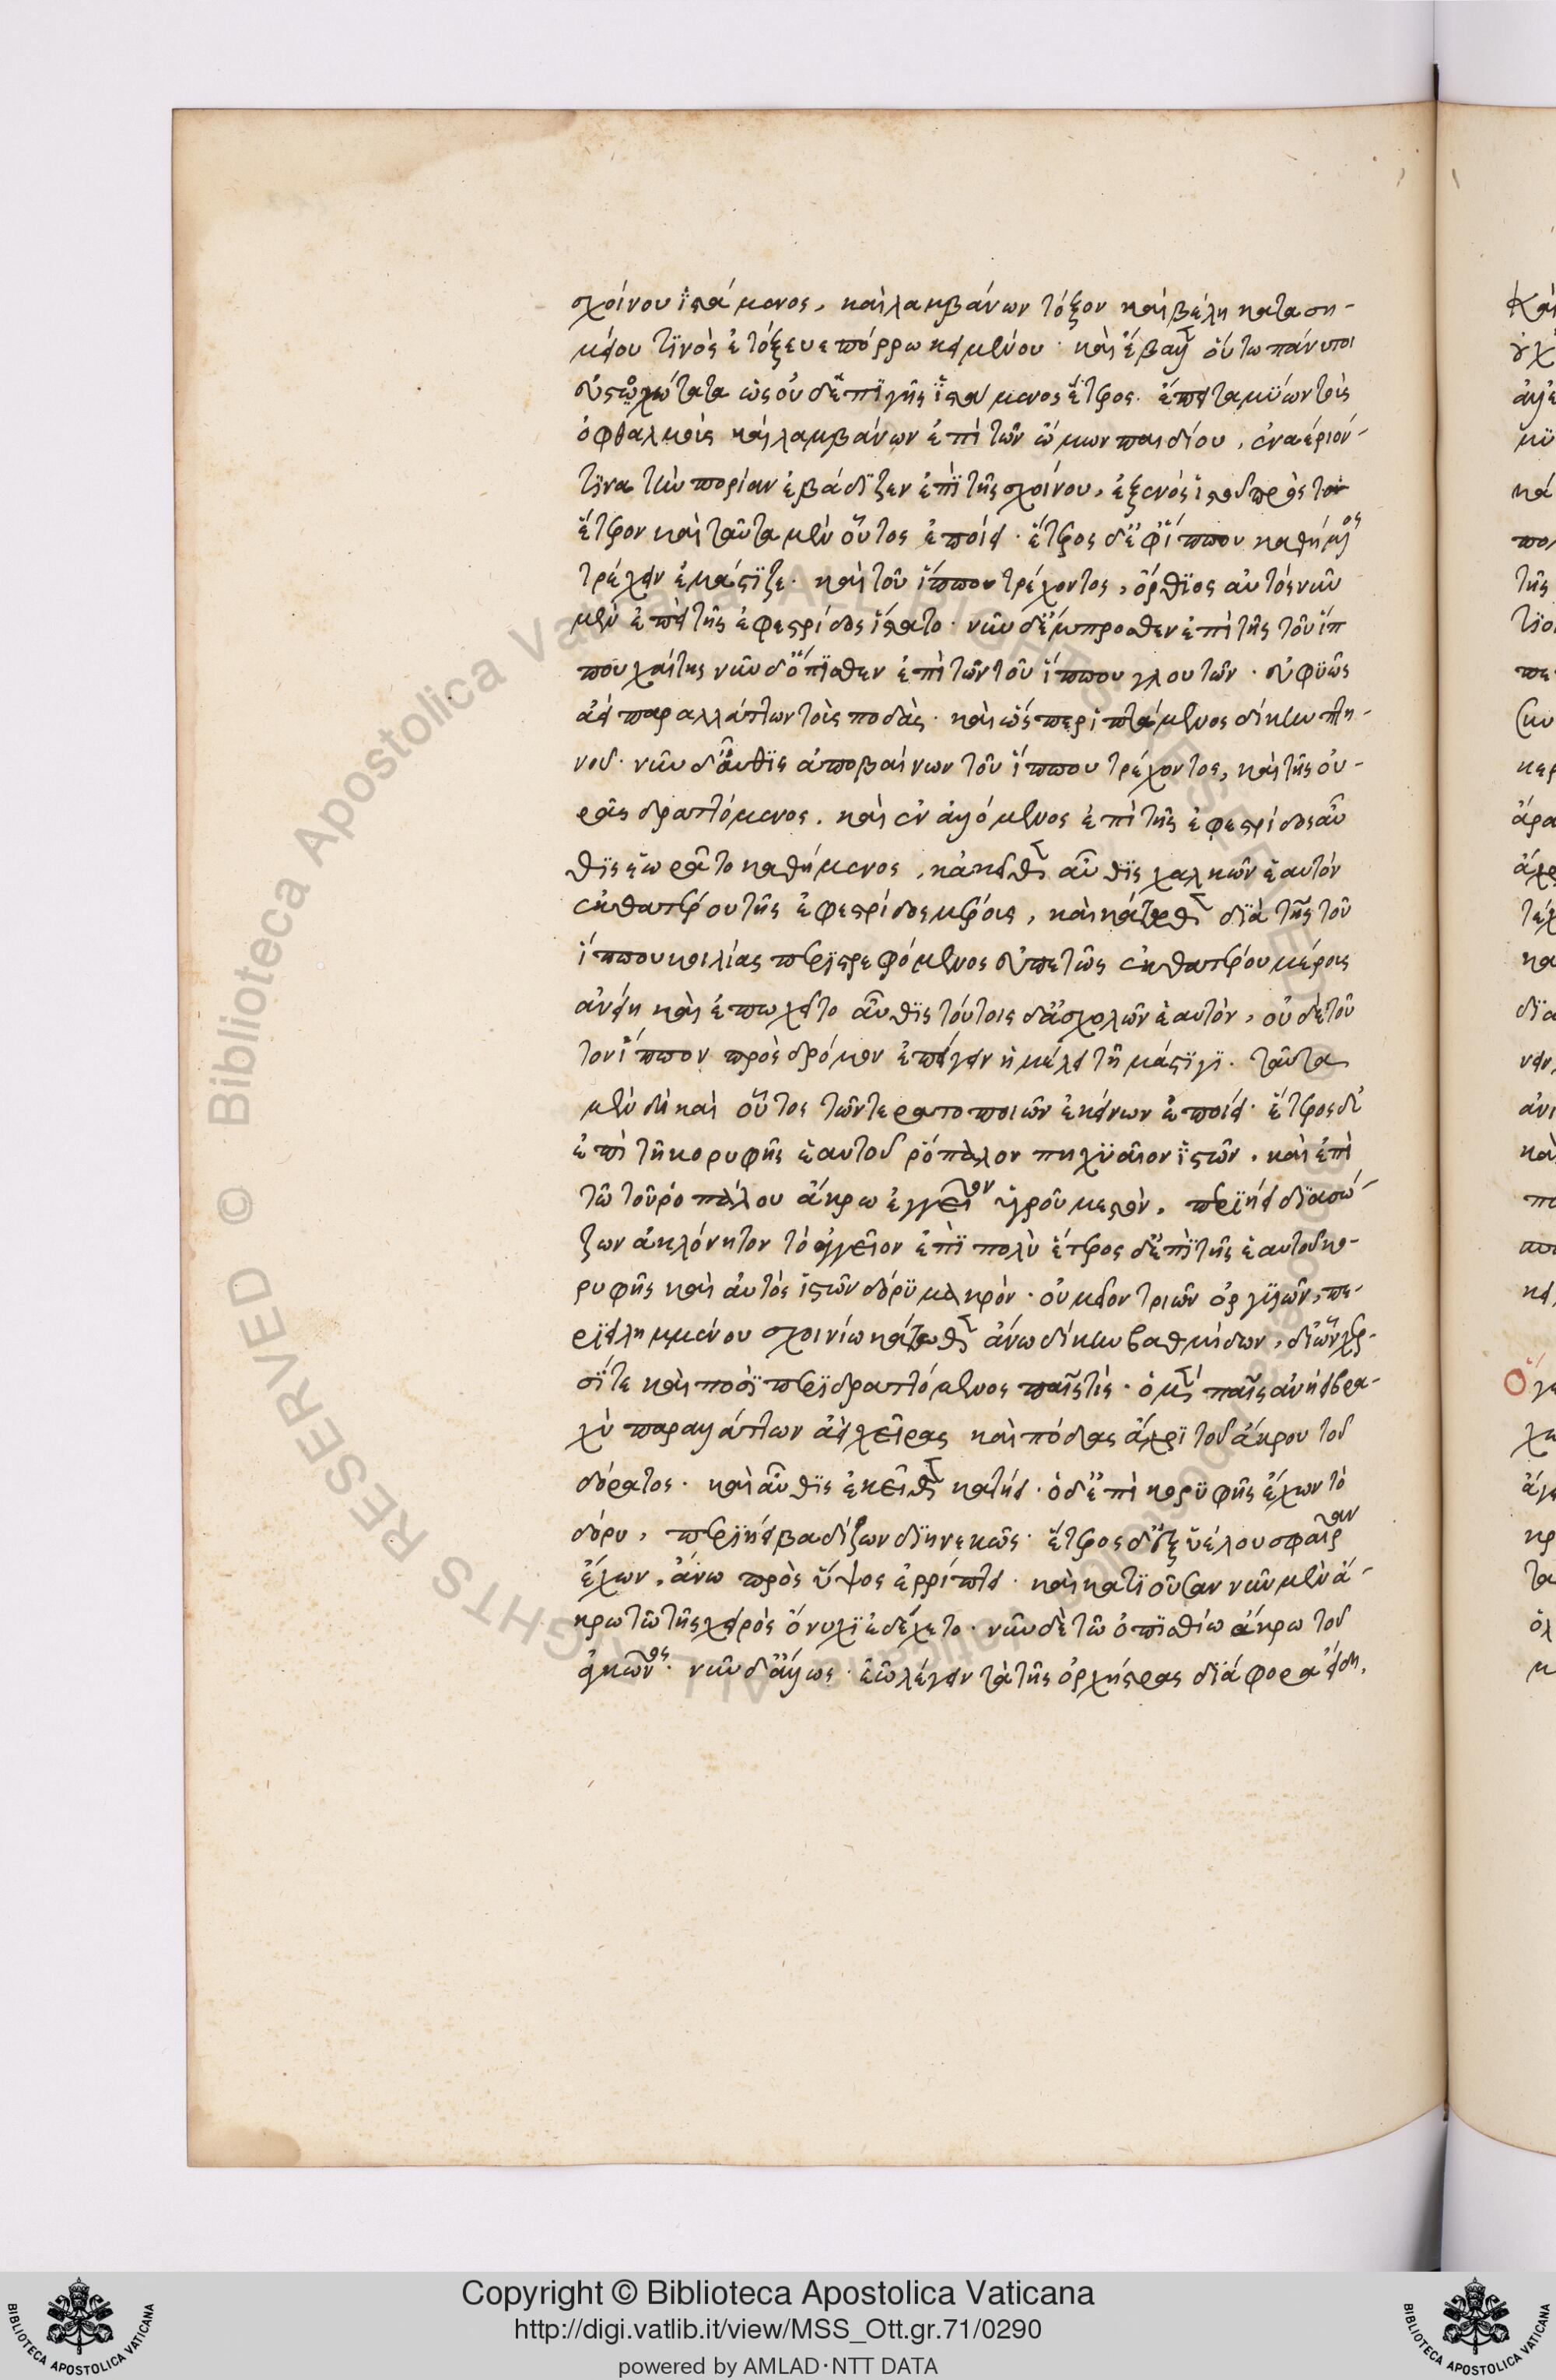 σχοίνου ἱστάμενος, καὶ λαμβάνων τόξον καὶ βέλη κατὰ ση-
μείου τινὸς ἐτόξευε πόρρω κειμένου· καὶ ἔβαλλεν οὕτω πάνυ τοι
εὐστοχώτατα ὡς οὐδ' ἐπὶ γῆς ἱστάμενος ἕτερος. ἔπειτα μύων τοὺς
ὀφθαλμοὺς καὶ λαμβάνων ἐπὶ τῶν ὤμων παιδίον, ἐναέριόν
τινα τὴν πορείαν ἐβάδιζεν ἐπὶ τῆς σχοίνου, ἐξ ἑνὸς ἱστοῦ πρὸς τὸν
ἕτερον καὶ ταῦτα μὲν οὗτος ἐποίει. ἕτερος δ' ἐφ' ἵππου καθήμενος
τρέχειν ἐμάστιζε. καὶ τοῦ ἵππου τρέχοντος, ὄρθιος αὐτὸς νῦν
μὲν ἐπὶ τῆς ἐφεστρίδος ἵστατο· νῦν δ' ἔμπροσθεν ἐπὶ τῆς τοῦ ἵπ
που χαίτης νῦν δ' ὄπισθεν ἐπὶ τῶν τοῦ ἵππου γλουτῶν· εὐφυῶς
ἀεὶ παραλλάττων τοὺς πόδας· καὶ ὥσπερ ἱπτάμενος δίκην πτη-
νοῦ. νῦν δ' αὖθις ἀποβαίνων τοῦ ἵππου τρέχοντος, καὶ τῆς οὐ-
ρᾶς δραττόμενος. καὶ ἀναγόμενος ἐπὶ τῆς ἐφεστρίδος αὖ
θις ἑωρᾶτο καθήμενος, κἀκεῖθεν αὖθις χαλκῶν ἑαυτὸν
ἐκ θατέρου τῆς ἐφεστρίδος μέρους, καὶ κάτωθεν διὰ τῆς τοῦ
ἵππου κοιλίας περιστρεφόμενος εὐπετῶς ἐκ θατέρου μέρους
ἀνῄει καὶ ἐπωχεῖτο αὖθις τούτοις δ' ἀσχολῶν ἑαυτὸν, οὐδὲ τοῦ
τὸν ἵππον πρὸς δρόμον ἐπείγειν ἠμέλει τῇ μάστιγι. ταῦτα
μὲν δὴ καὶ οὗτος τῶν τερατοποιῶν ἐκείνων ἐποίει. ἕτερος δὲ
ἐπὶ τῆς κορυφῆς ἑαυτοῦ ῥόπαλον πηχυαῖον ἱστῶν. καὶ ἐπὶ
τῷ τοῦ ῥοπάλου ἄκρῳ ἀγγεῖον ὑγροῦ μεστὸν. περιῄει διασώ-
ζων ἀκλόνητον τὸ ἀγγεῖον ἐπὶ πολὺ ἕτερος δ' ἐπὶ τῆς ἑαυτοῦ κο-
ρυφῆς καὶ αὐτὸς ἱστῶν δόρυ μακρὸν. οὐ μεῖον τριῶν ὀργυιῶν, πε-
ριειλημμένου σχοινίῳ κάτωθεν ἄνω δίκην βαθμίδων, δι' ὧν χερ-
σί τε καὶ ποσὶ περιδραττόμενος παῖς τις. ὁ μὲν παῖς ἀνῄει βρα-
χὺ παραλλάττων ἀεὶ χεῖρας καὶ πόδας ἄχρι τοῦ ἄκρου τοῦ
δόρατος. καὶ αὖθις ἐκεῖθεν κατῄει. ὁ δ' ἐπὶ κορυφῆς ἔχων τὸ
δόρυ, περιῄει βαδίζων διηνεκῶς. ἕτερος δ' ἐξ ὑέλου σφαῖραν
ἔχων. ἄνω πρὸς ὕψος ἐρρίπτει. καὶ κατιοῦσαν νῦν μὲν ἄ-
κρῳ τῷ τῆς χειρὸς ὄνυχι ἐδέχετο. νῦν δὲ τῷ ὀπισθίῳ ἄκρῳ τοῦ
ἀγκῶνος. νῦν δ' ἄλλως. ἐῶ λέγειν τὰ τῆς ὀρχήστρας διάφορα εἴδη,
Copyright © Biblioteca Apostolica Vaticana
http://digi.vatlib.it/view/MSS_Ott.gr.71/0290
powered by AMLAD·NTT DATA